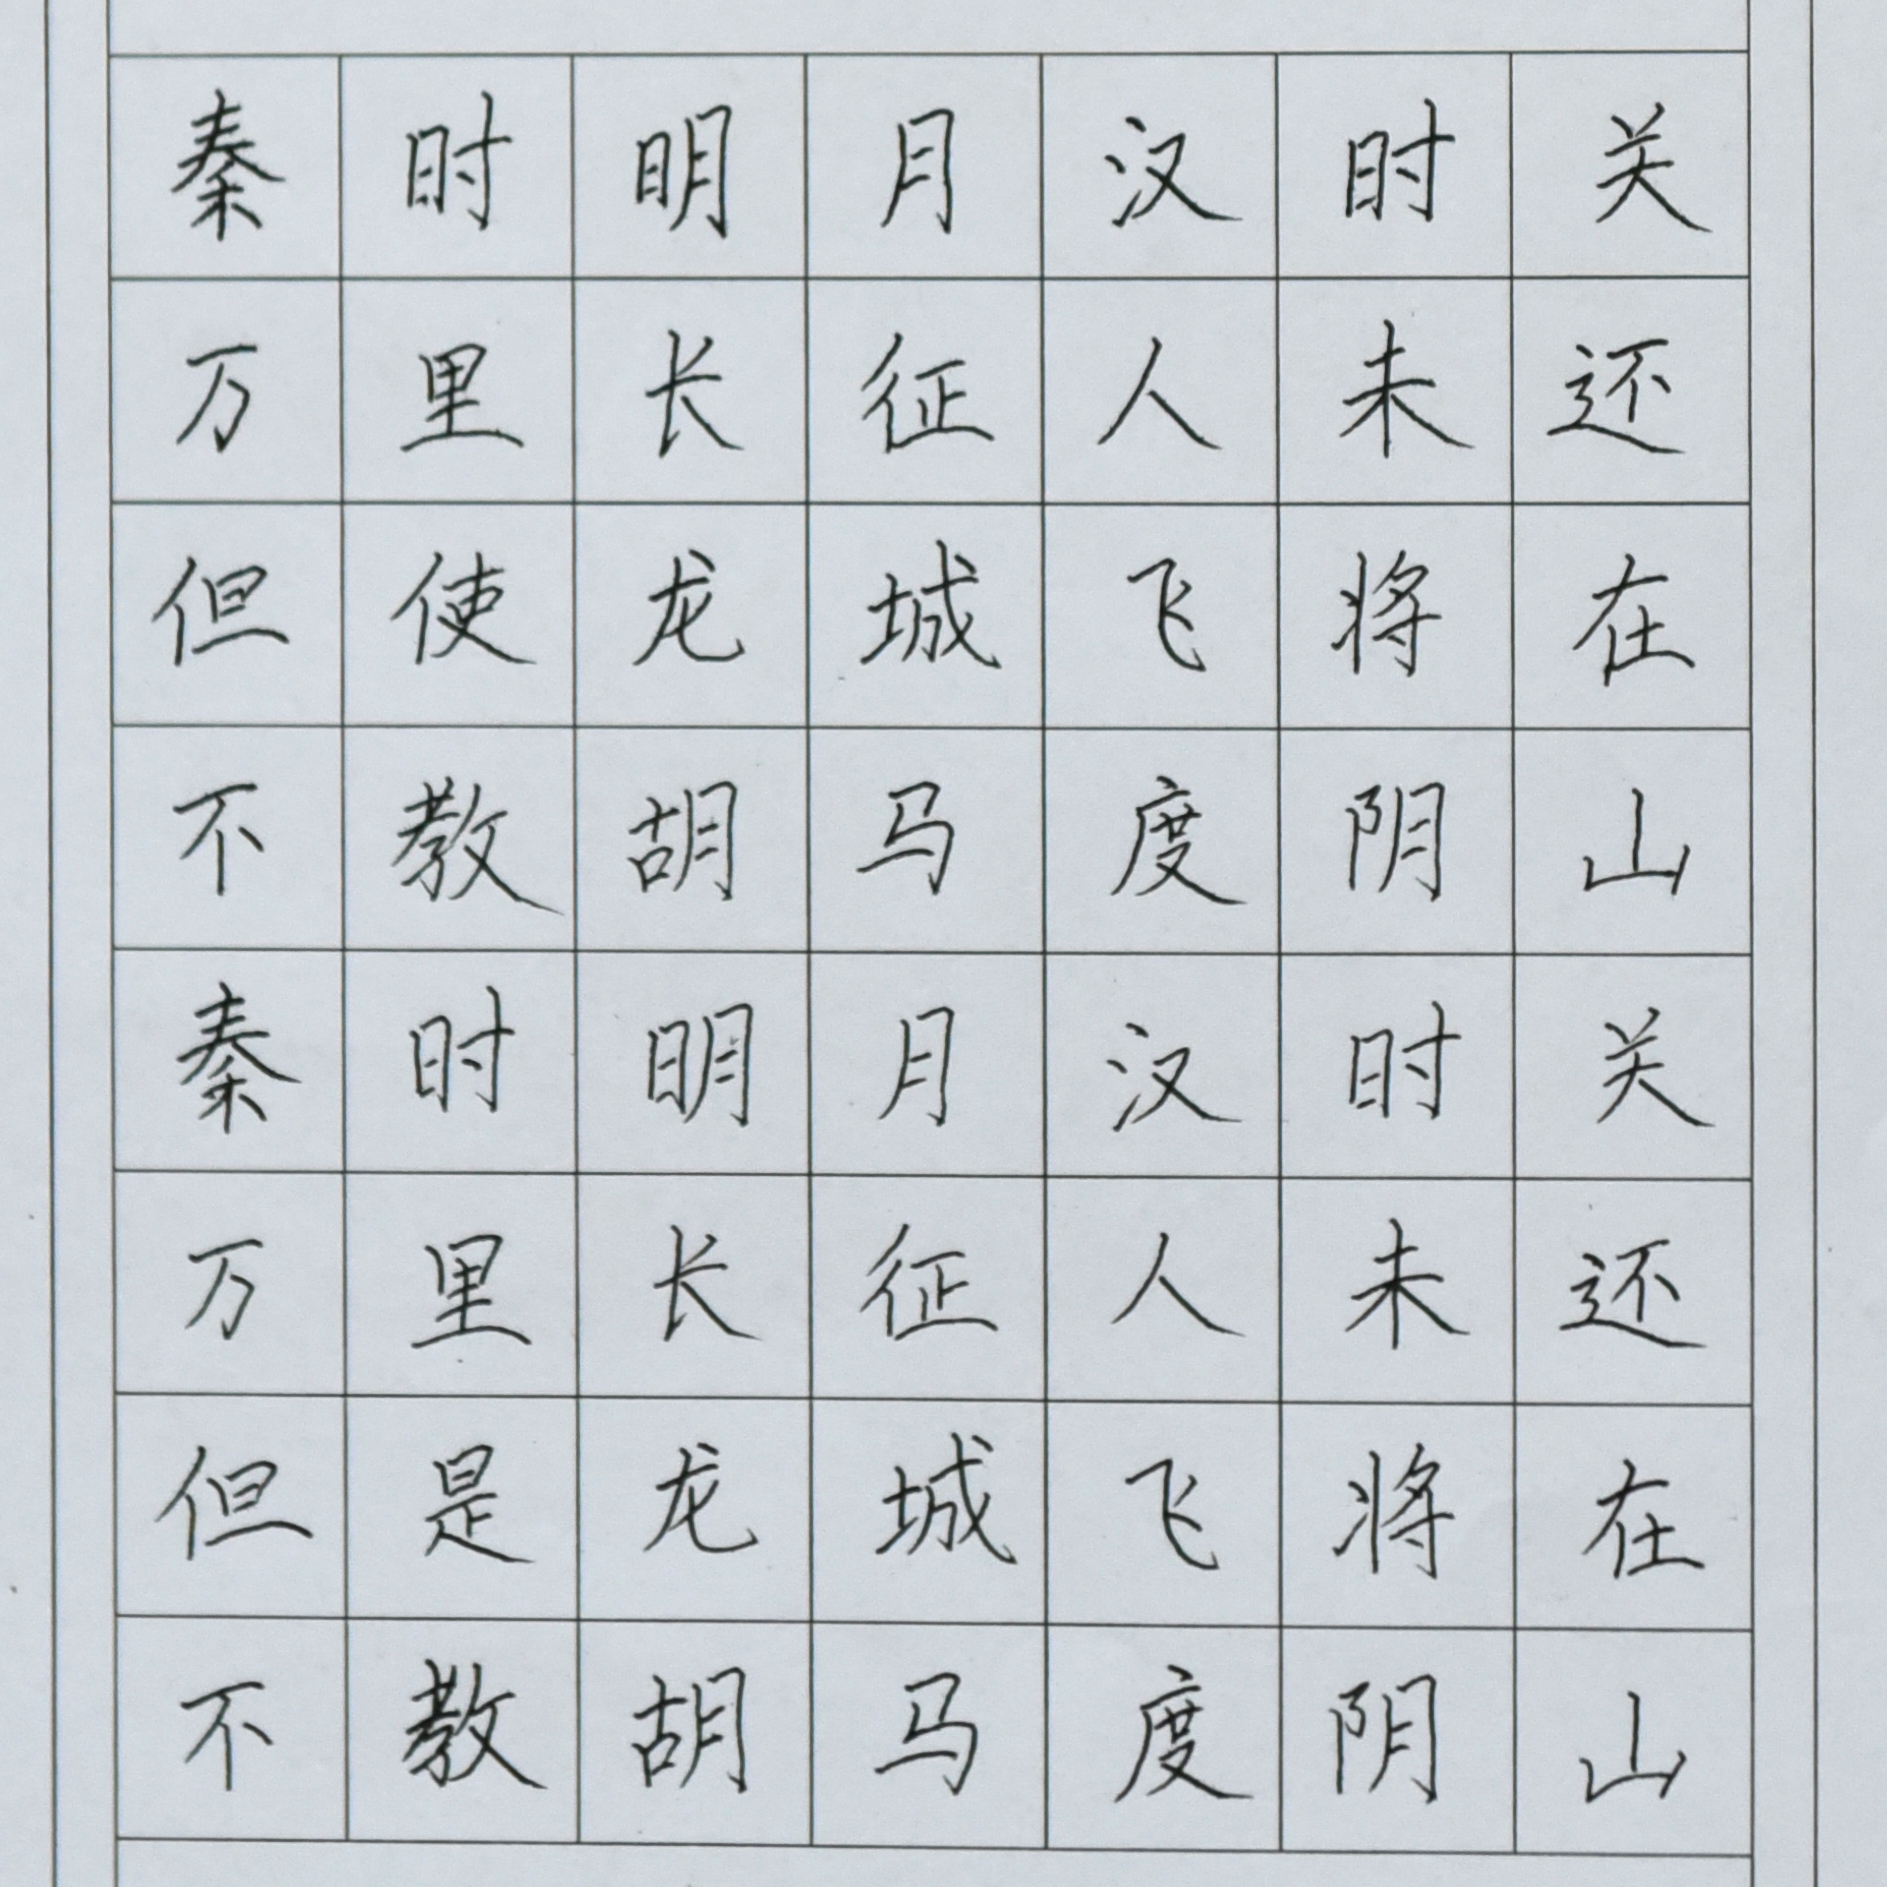 秦时明月汉时关
万里长征人未还
但使龙城飞将在
不教胡马度阴山
秦时明月汉时关
万里长征人未还
但是龙城飞将在
不教胡马度阴山